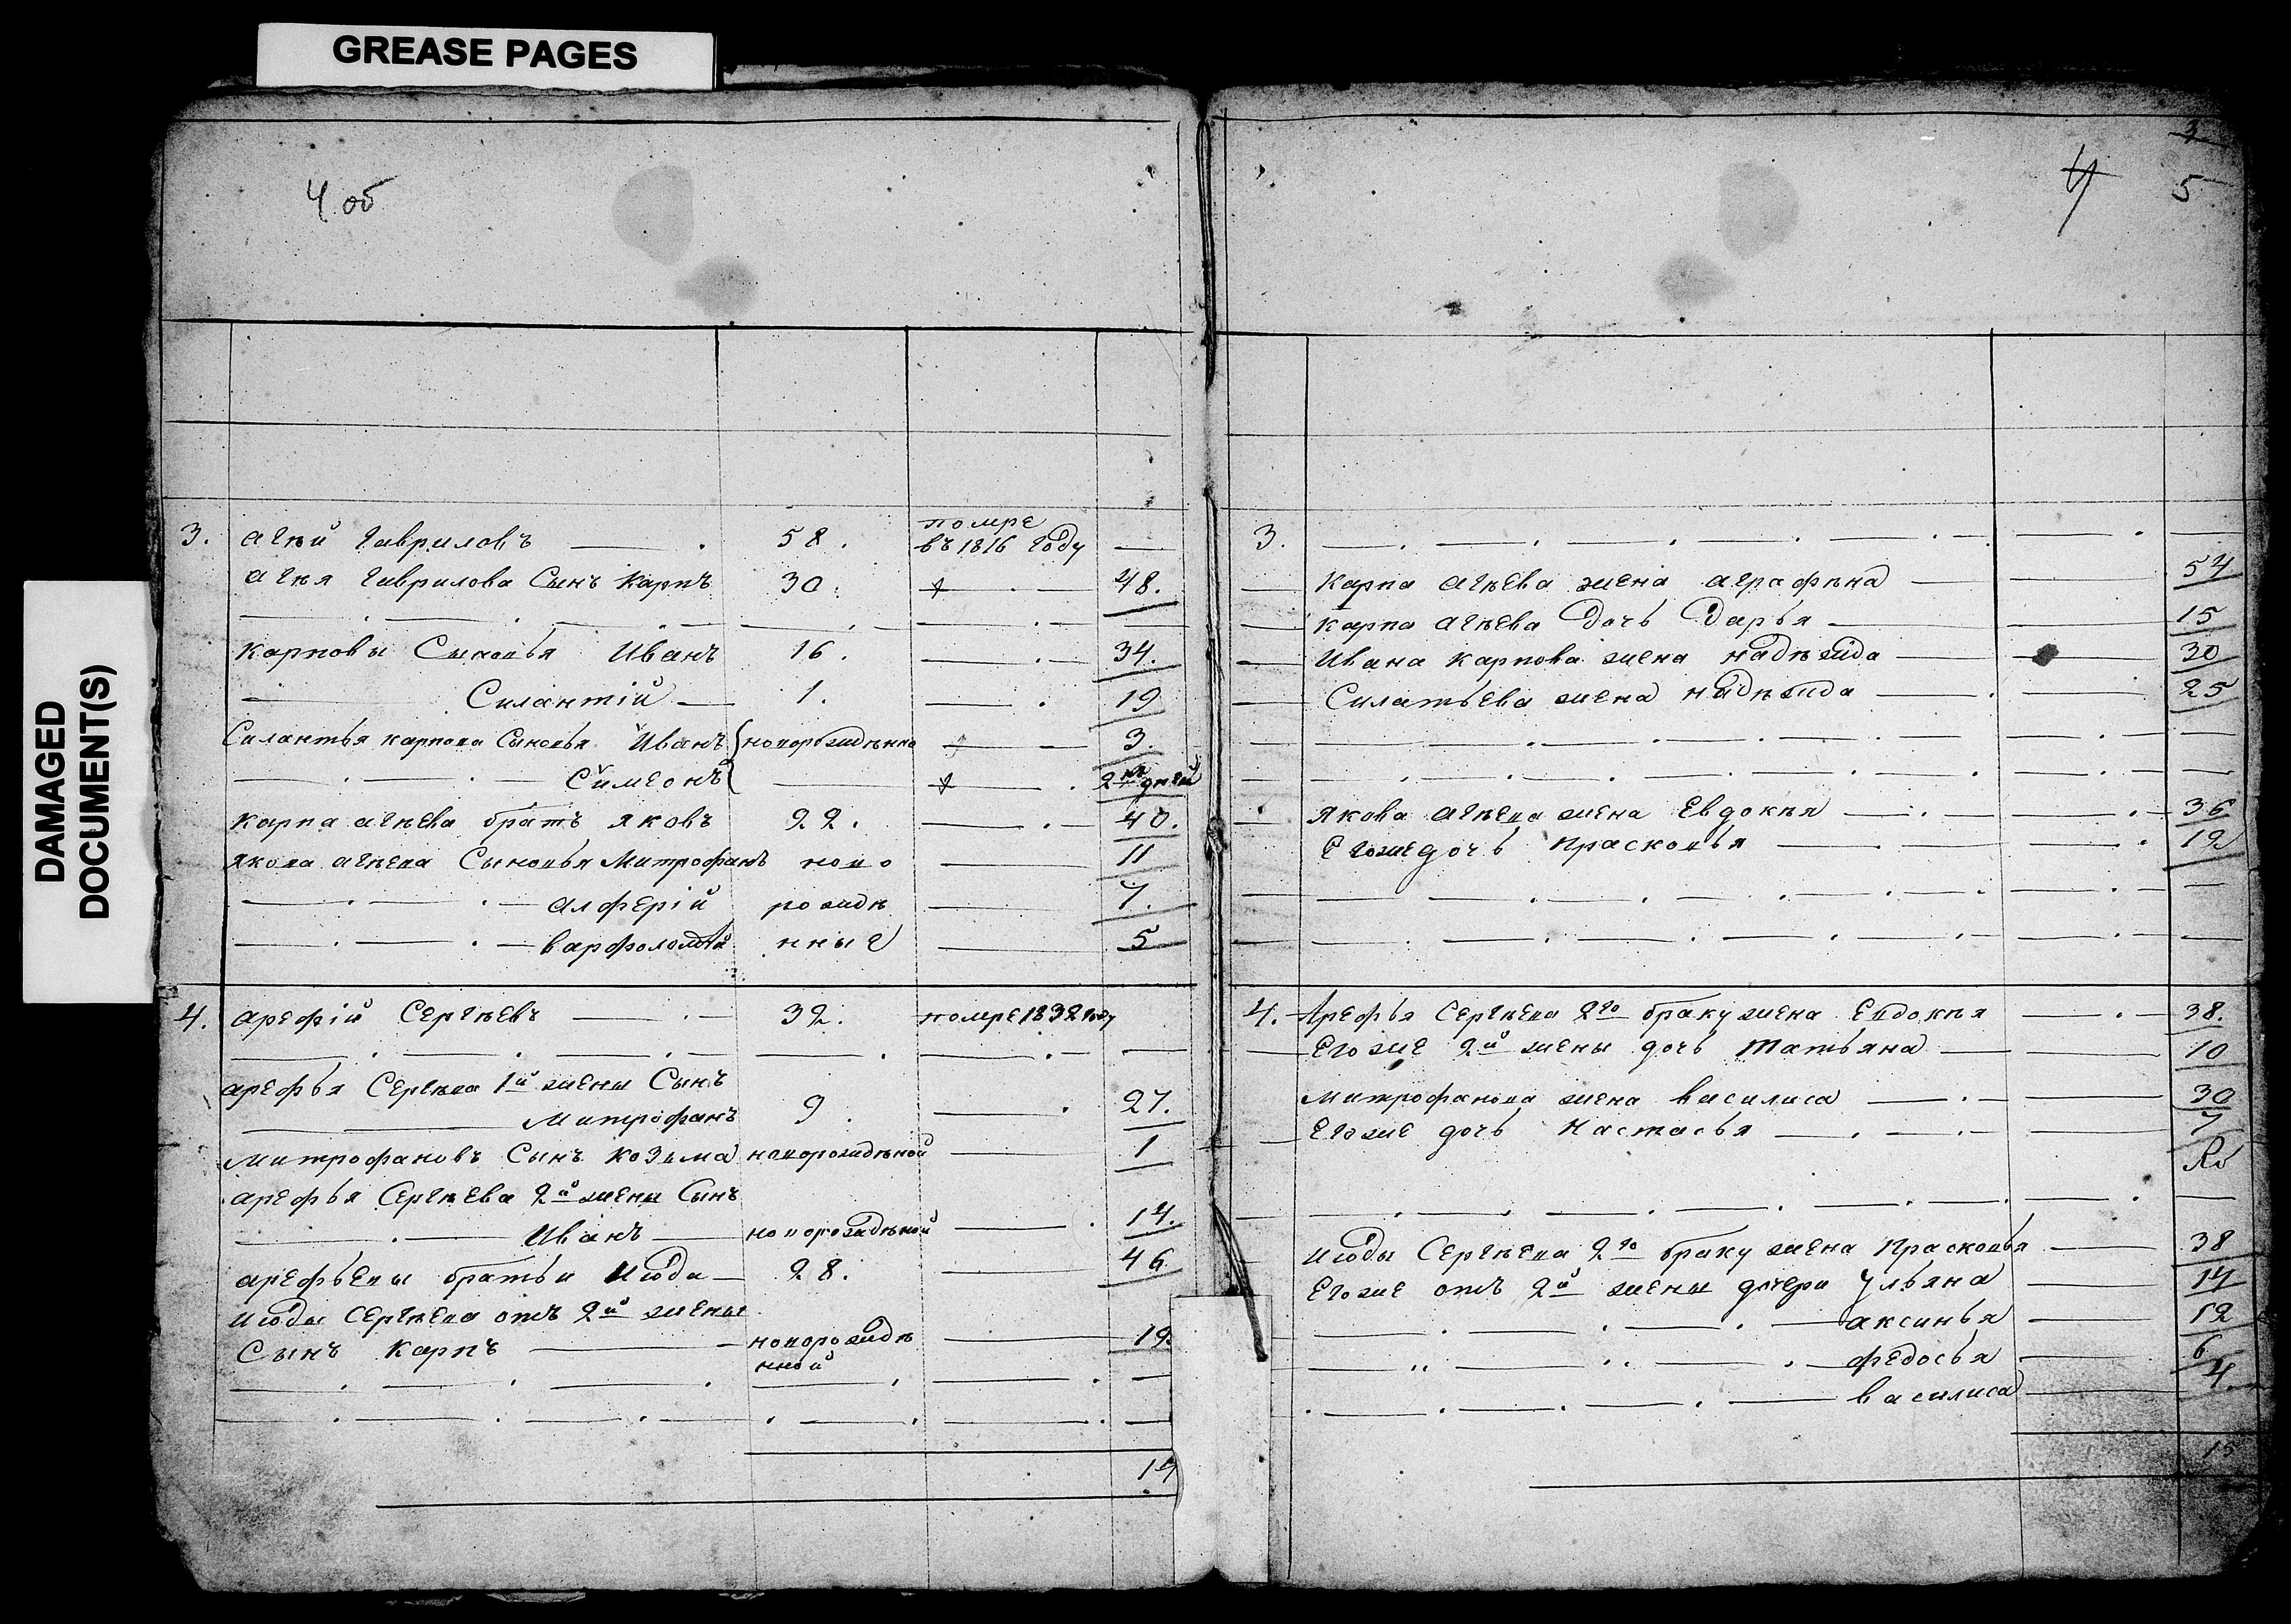 GREASE PAGES
DAMAGED
DOCUMENT(S)
4 об
3. Агѣй Гавриловъ — 58. помре
въ 1816 году —
Агѣя Гаврилова Сынъ Карпъ 30. — 48.
Карповы Сыновья Иванъ 16. — 34.
— Силантій — 1. — 19
Силантья Карпова Сыновья Иванъ новорожденно — 3.
— Симеонъ — 2 дней
Карпа Агѣева братъ Яковъ 22. — 40.
Якова Агѣева Сыновья Митрофанъ ново — 11
— Алферій рожде — 7.
— Варфоломей нные — 5
4. Арефій Сергѣевъ — 32. помре 1832 году
Арефья Сергѣева 1й жены Сынъ
— Митрофанъ 9. — 27.
Митрофановъ Сынъ Козьма новорожденой — 1
Арефья Сергѣева 2й жены Сынъ
— Иванъ — новорожденой — 14.
Арефьевы братьи Июда — 28. — 46
Июды Сергѣева отъ 2й жены
Сынъ Карпъ — новорожде — 19.
нной
14
3
4 5
3. —
Карпа Агѣева жена Аграфѣна — 54
Карпа Агѣева дочь Дарья — 15
Ивана Карпова жена Надѣжда — 30
Силатьева жена Надѣжда — 25
Якова Агѣева жена Евдокѣя — 36
Егоже дочь Прасковья — 12
4. Арефья Сергѣева 2го браку жена Евдокѣя — 38.
Егоже 2й жены дочь Татьяна — 10
Митрофанова жена Василиса — 30
Егоже дочь Настасья — 7
Июды Сергѣева 2го браку жена Прасковья — 38
Егоже отъ 2й жены дочери Ульяна — 14
— Аксинья — 12
— Федосья — 6
— Василиса — 4.
15